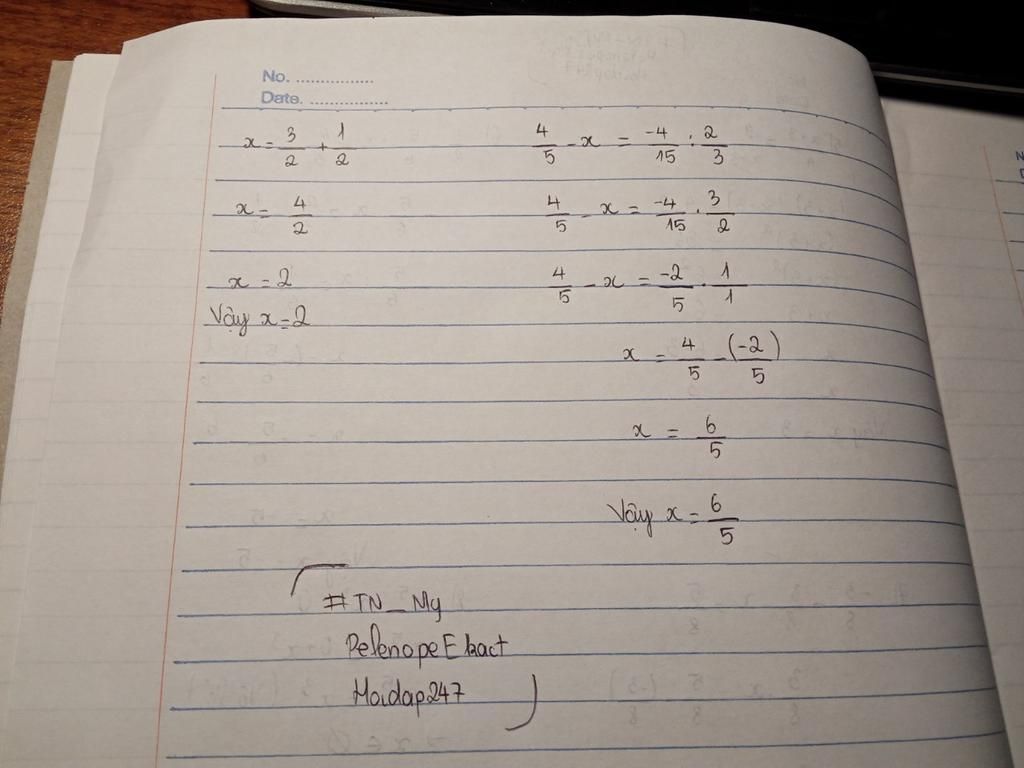 No. ................
Date. ................
x = 3/2 + 1/2
x = 4/2
x = 2
Vậy x = 2
4/5 - x = -4/15 : 2/3
4/5 - x = -4/15 . 3/2
4/5 - x = -2/5 . 1/1
x = 4/5 - (-2/5)
x = 6/5
Vậy x = 6/5
#TN_My
PelenopeEkact
Hoidap247